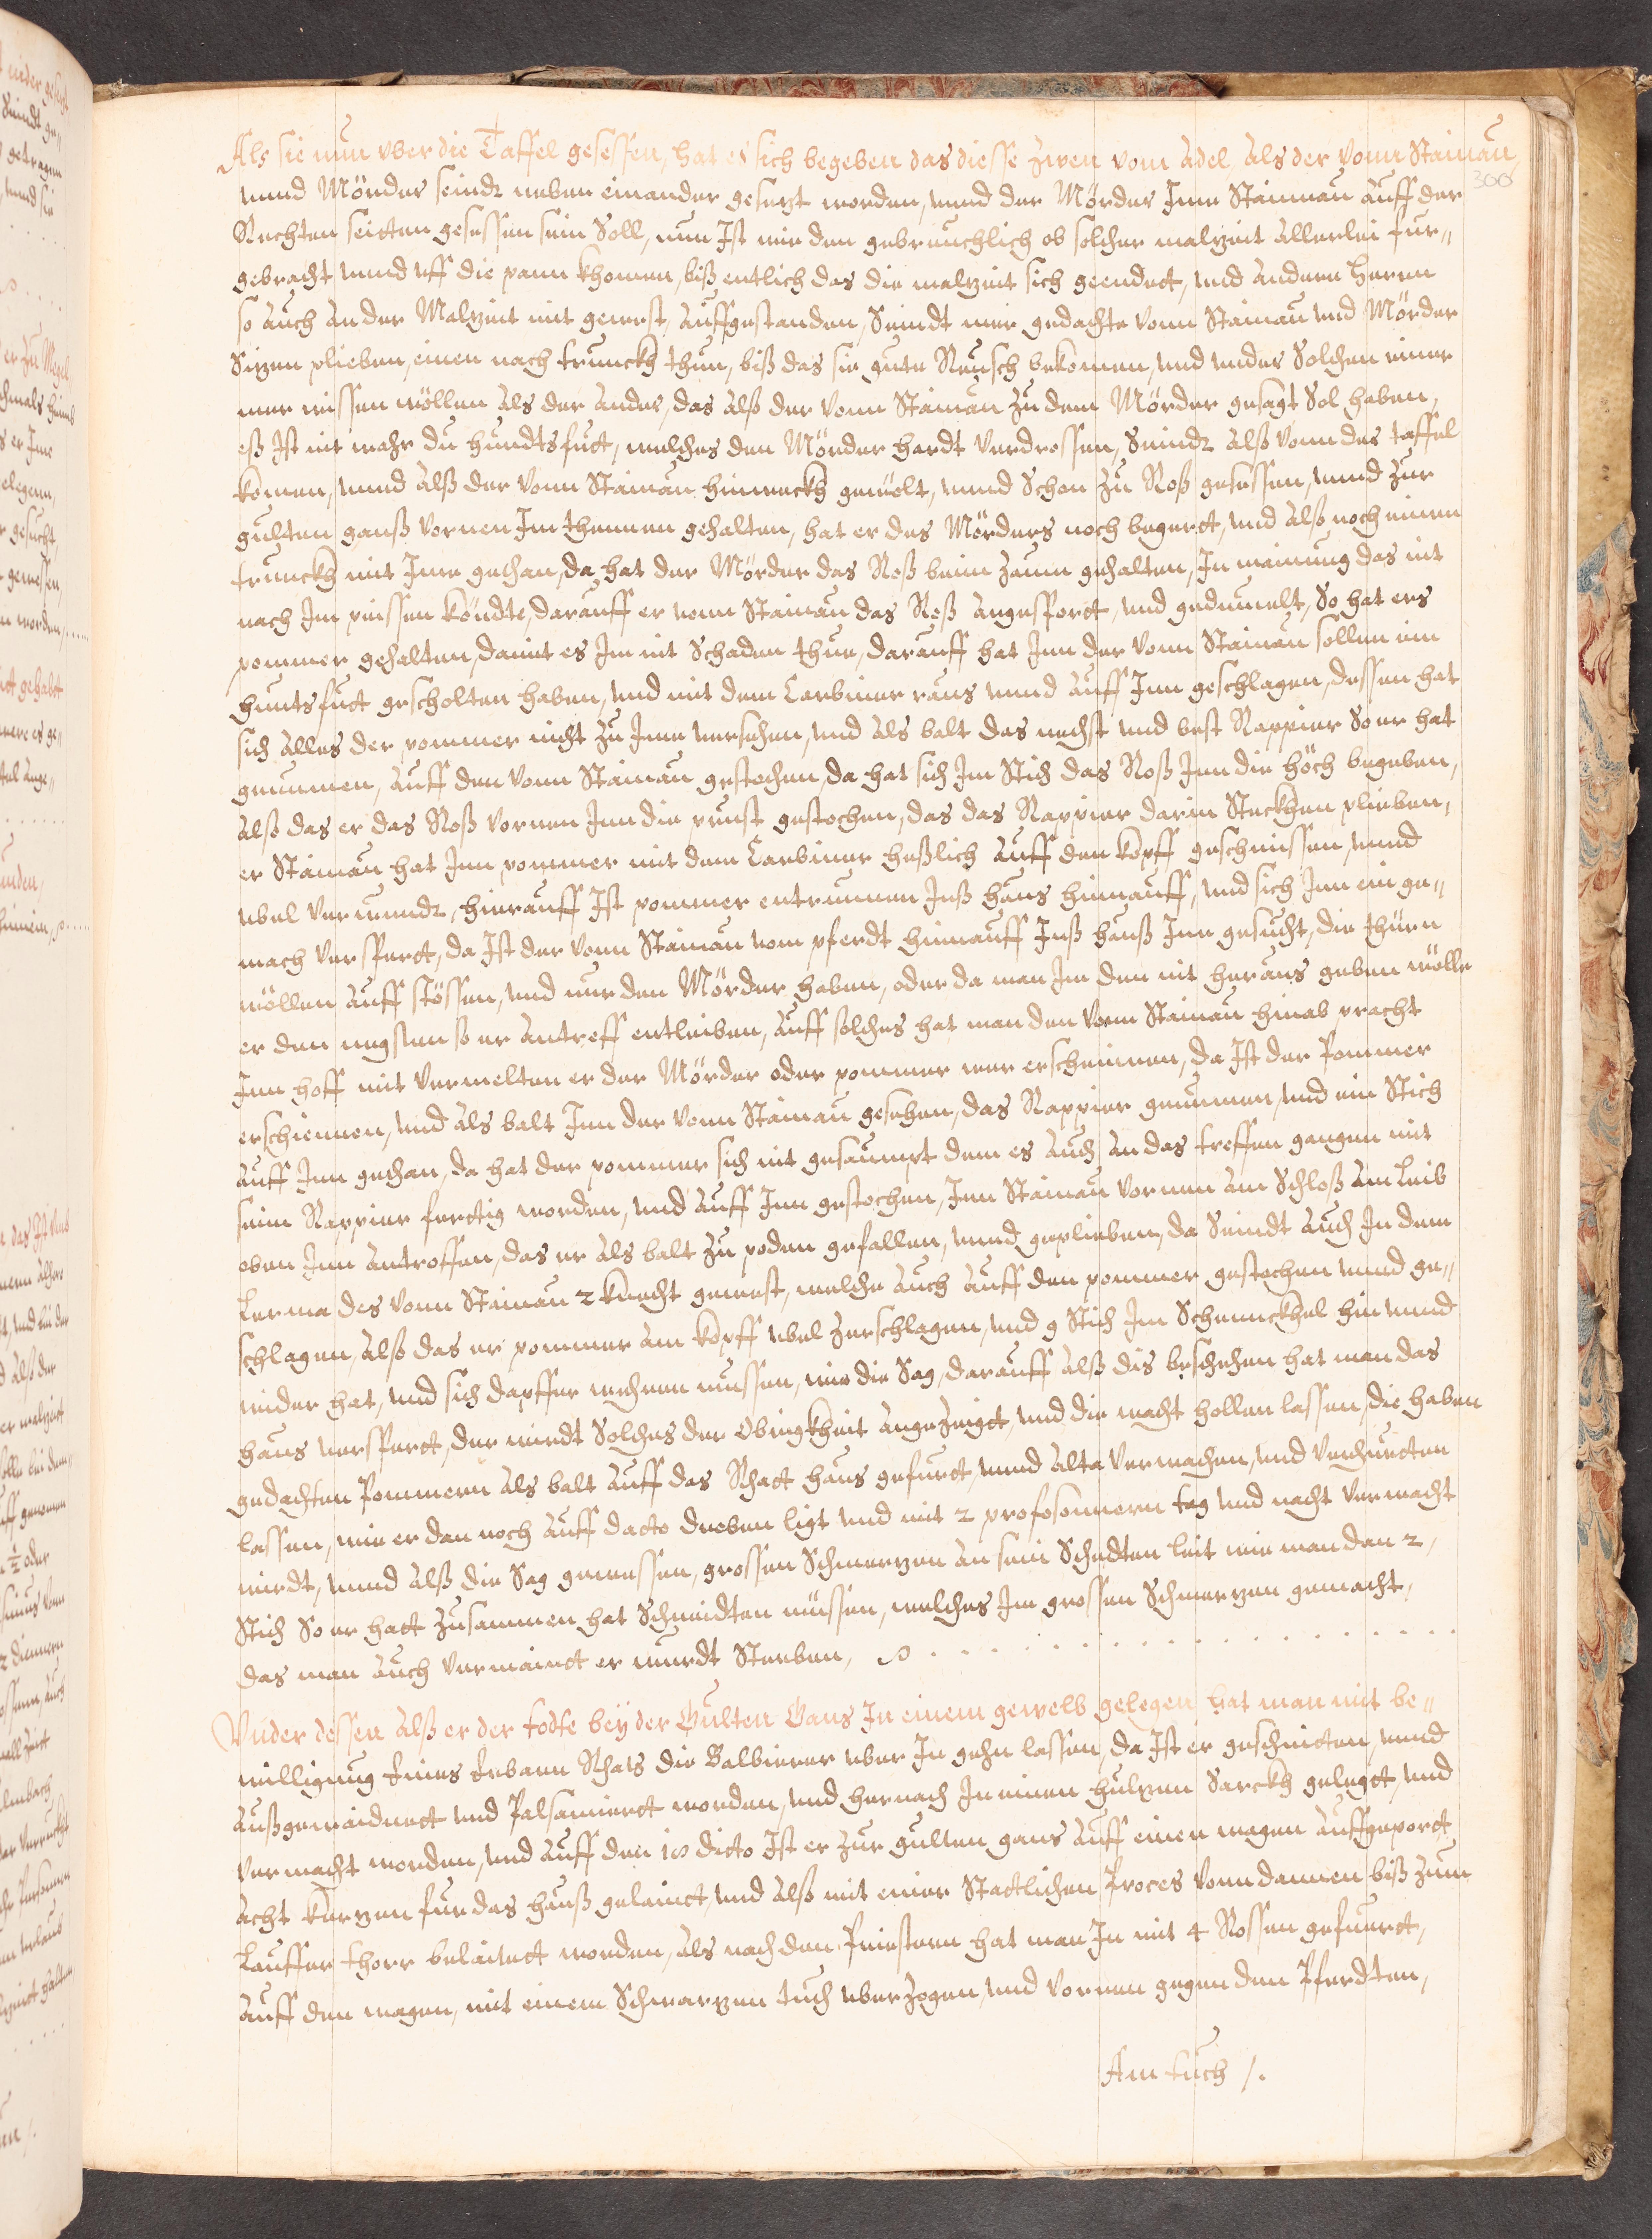 Als sie nun vber die Taffel gesessen, hat es sich begeben das diesse zwen vom Adel, als der vonn Stainau,
300
unnd Mörder seindt neben einander gesezt worden, unnd der Mörder Jme Stainnau auff der
Rechten seitten gesessen sein Soll, nun Jst wie den gebreuchlich ob solcher malzeit allerlei für„
gebracht unnd uff die pann khomen, biß entlich das die malzeit sich geendett, und andere herrn
so auch an der Malzeit mit gewest, auffgestanden, Seindt wir gedachte vonn Stainau und Mörder
Sizen plieben, einen nach trunckh thun, biß das sie gute Reusch bekomen, und under Solchen einer
mer wissen wöllen als der ander, das alß der vonn Stainau zu dem Mörder gesagt Sol haben,
eß Jst nit wahr du hundtsfutt, welches den Mörder hardt verdrossen, Seindt alß vonn der taffel
komen, unnd alß der vonn Stainau hinweckh gewölt, unnd Schon zu Roß gesessen, unnd zur
gulten ganß vornen Jm thennen gehalten, hat er des Mörders noch begertt, und alß noch einen
trunckh mit Jme gethan, da hat der Mörder das Roß beim Zaum gehalten, Jn mainung das nit
nach Jm peissen köndte, darauff er vonn Stainau das Roß angesportt, und gedumelt, So hat ers
pommer gehalten, damit es Jm nit Schaden thue, darauff hat Jnn der vonn Stainau sollen ein
huntsfutt gescholten haben, und mit dem Carbiner raus unnd auff Jnn geschlagen, dessen hat
sich alles der pommer nicht zu Jme versehen, und als balt das nechst und best Rappier So er hat
genummen, auff den vonn Stainau gestochen, da hat sich Jm Stich das Roß Jnn die höch begeben,
alß das er das Roß vornen Jnn die prust gestochen, das das Rappier darin Steckhen plieben,
er Stainau hat Jnn pommer mit dem Carbiner heßlich auff den kopff geschmissen, unnd
ubel verwundt, hierauff Jst pommer entrunnen Jnß haus hinnauff, und sich Jnn ein ge„
mach versperrt, da Jst der vonn Stainau vom pferdt hinnauff Jnß hauß Jnn gesucht, die thürn
wöllen auff stossen, und nur den Mörder haben, oder da man Jm den nit heraus geben wölle
er den negsten so er antreff entleiben, auff solches hat man den vonn Stainau hinab pracht
Jnn hoff mit vermelten er der Mörder oder pommer wer erscheinnen, da Jst der Pommer
erschiennen, und als balt Jnn der vonn Stainau gesehen, das Rappier genummen, und ein Stich
auff Jnn gethan, da hat der pommer sich nit gesaumpt dem es auch an das treffen gangen mit
seim Rappier ferttig worden, und auff Jnn gestochen, Jnn Stainau vornen am Schloß am Leib
eben Jnn antroffen, das er als balt zu poden gefallen, unnd geplieben, da Seindt auch Jn dem
Lerma des vonn Stainau 2 knecht gewest, welche auch auff den pommer gestochen unnd ge„
schlagen, alß das er pommer am kopff ubel zerschlagen, und 9 Stich Jm Schennckhel hin unnd
wider hat, und sich dapffer wehren müssen, wie die Sag, darauff alß dis beschehen hat man das
haus versperrt, der wirdt Solches der Obrigkheit angezeigt, und die wacht hollen lassen, die haben
gedachten Pommern als balt auff das Rhatt haus gefurtt, unnd alta vermachen, und verhuetten
lassen, wie er dan noch auff datto droben ligt und mit 2 profosonnern tag und nacht verwacht
wirdt, unnd alß die Sag gewessen, grossen Schmerzen an sein Schedten leit wie man dan 2,
Stich So er hatt zusammen hat Schneidten müssen, welches Jm grossen Schmerzen gemacht,
das man auch vermainet er wurdt Sterben,
Vnder dessen alß er der todte bey der Gulten Gans Jn einem gewelb gelegen hat man mit be„
willigung Eines Erbarn Rhats die Balbierer uber Jn gehn lassen, da Jst er geschnitten, unnd
außgewaidnett und Palsamiertt worden, und hernach Jn einen hulzen Sarckh gelegtt, und
vermacht worden, und auff den 10 ditto Jst er zur gulten gans auff einen wagen auffgeportt
acht kerzen fur das hauß gelainet, und alß mit einer Stattlichen Proces vonn dannen biß zum
Lauffer thorr belaitett worden, als nach den Priestern hat man Jn mit 4 Rossen gefuertt,
auff den wagen, mit einem Schwarzen tuch uberzogen, und vornen gegen den Pferdten,
Am tuch /.